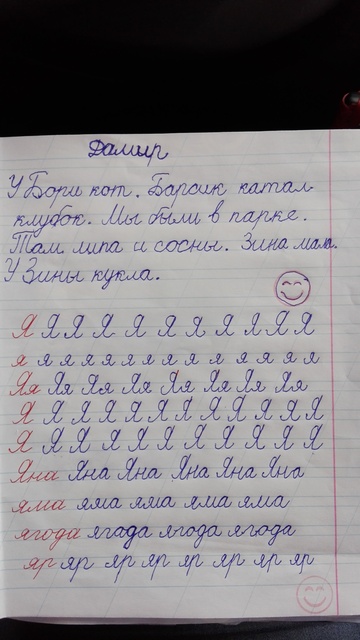 Дамир
У Бори кот. Барсик катал
клубок. Мы были в парке.
Там липа и сосны. Зина мала.
У Зины кукла.
Я Я Я Я Я Я Я Я Я Я Я
я я я я я я я я я я я я я
Яя Яя Яя Яя Яя Яя Яя Яя
Я Я Я Я Я Я Я Я Я Я Я Я
Я Я Я Я Я Я Я Я Я Я Я
Яна Яна Яна Яна Яна Яна
яма яма яма яма яма
ягода ягада ягода ягода
яр яр яр яр яр яр яр яр